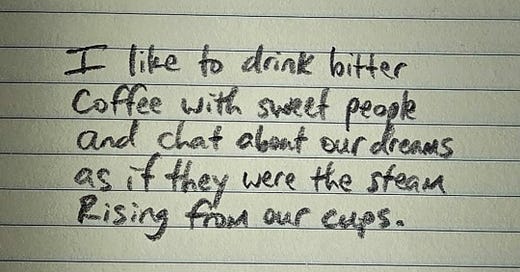 I like to drink bitter
Coffee with sweet people
and chat about our dreams
as if they were the steam
Rising from our cups.